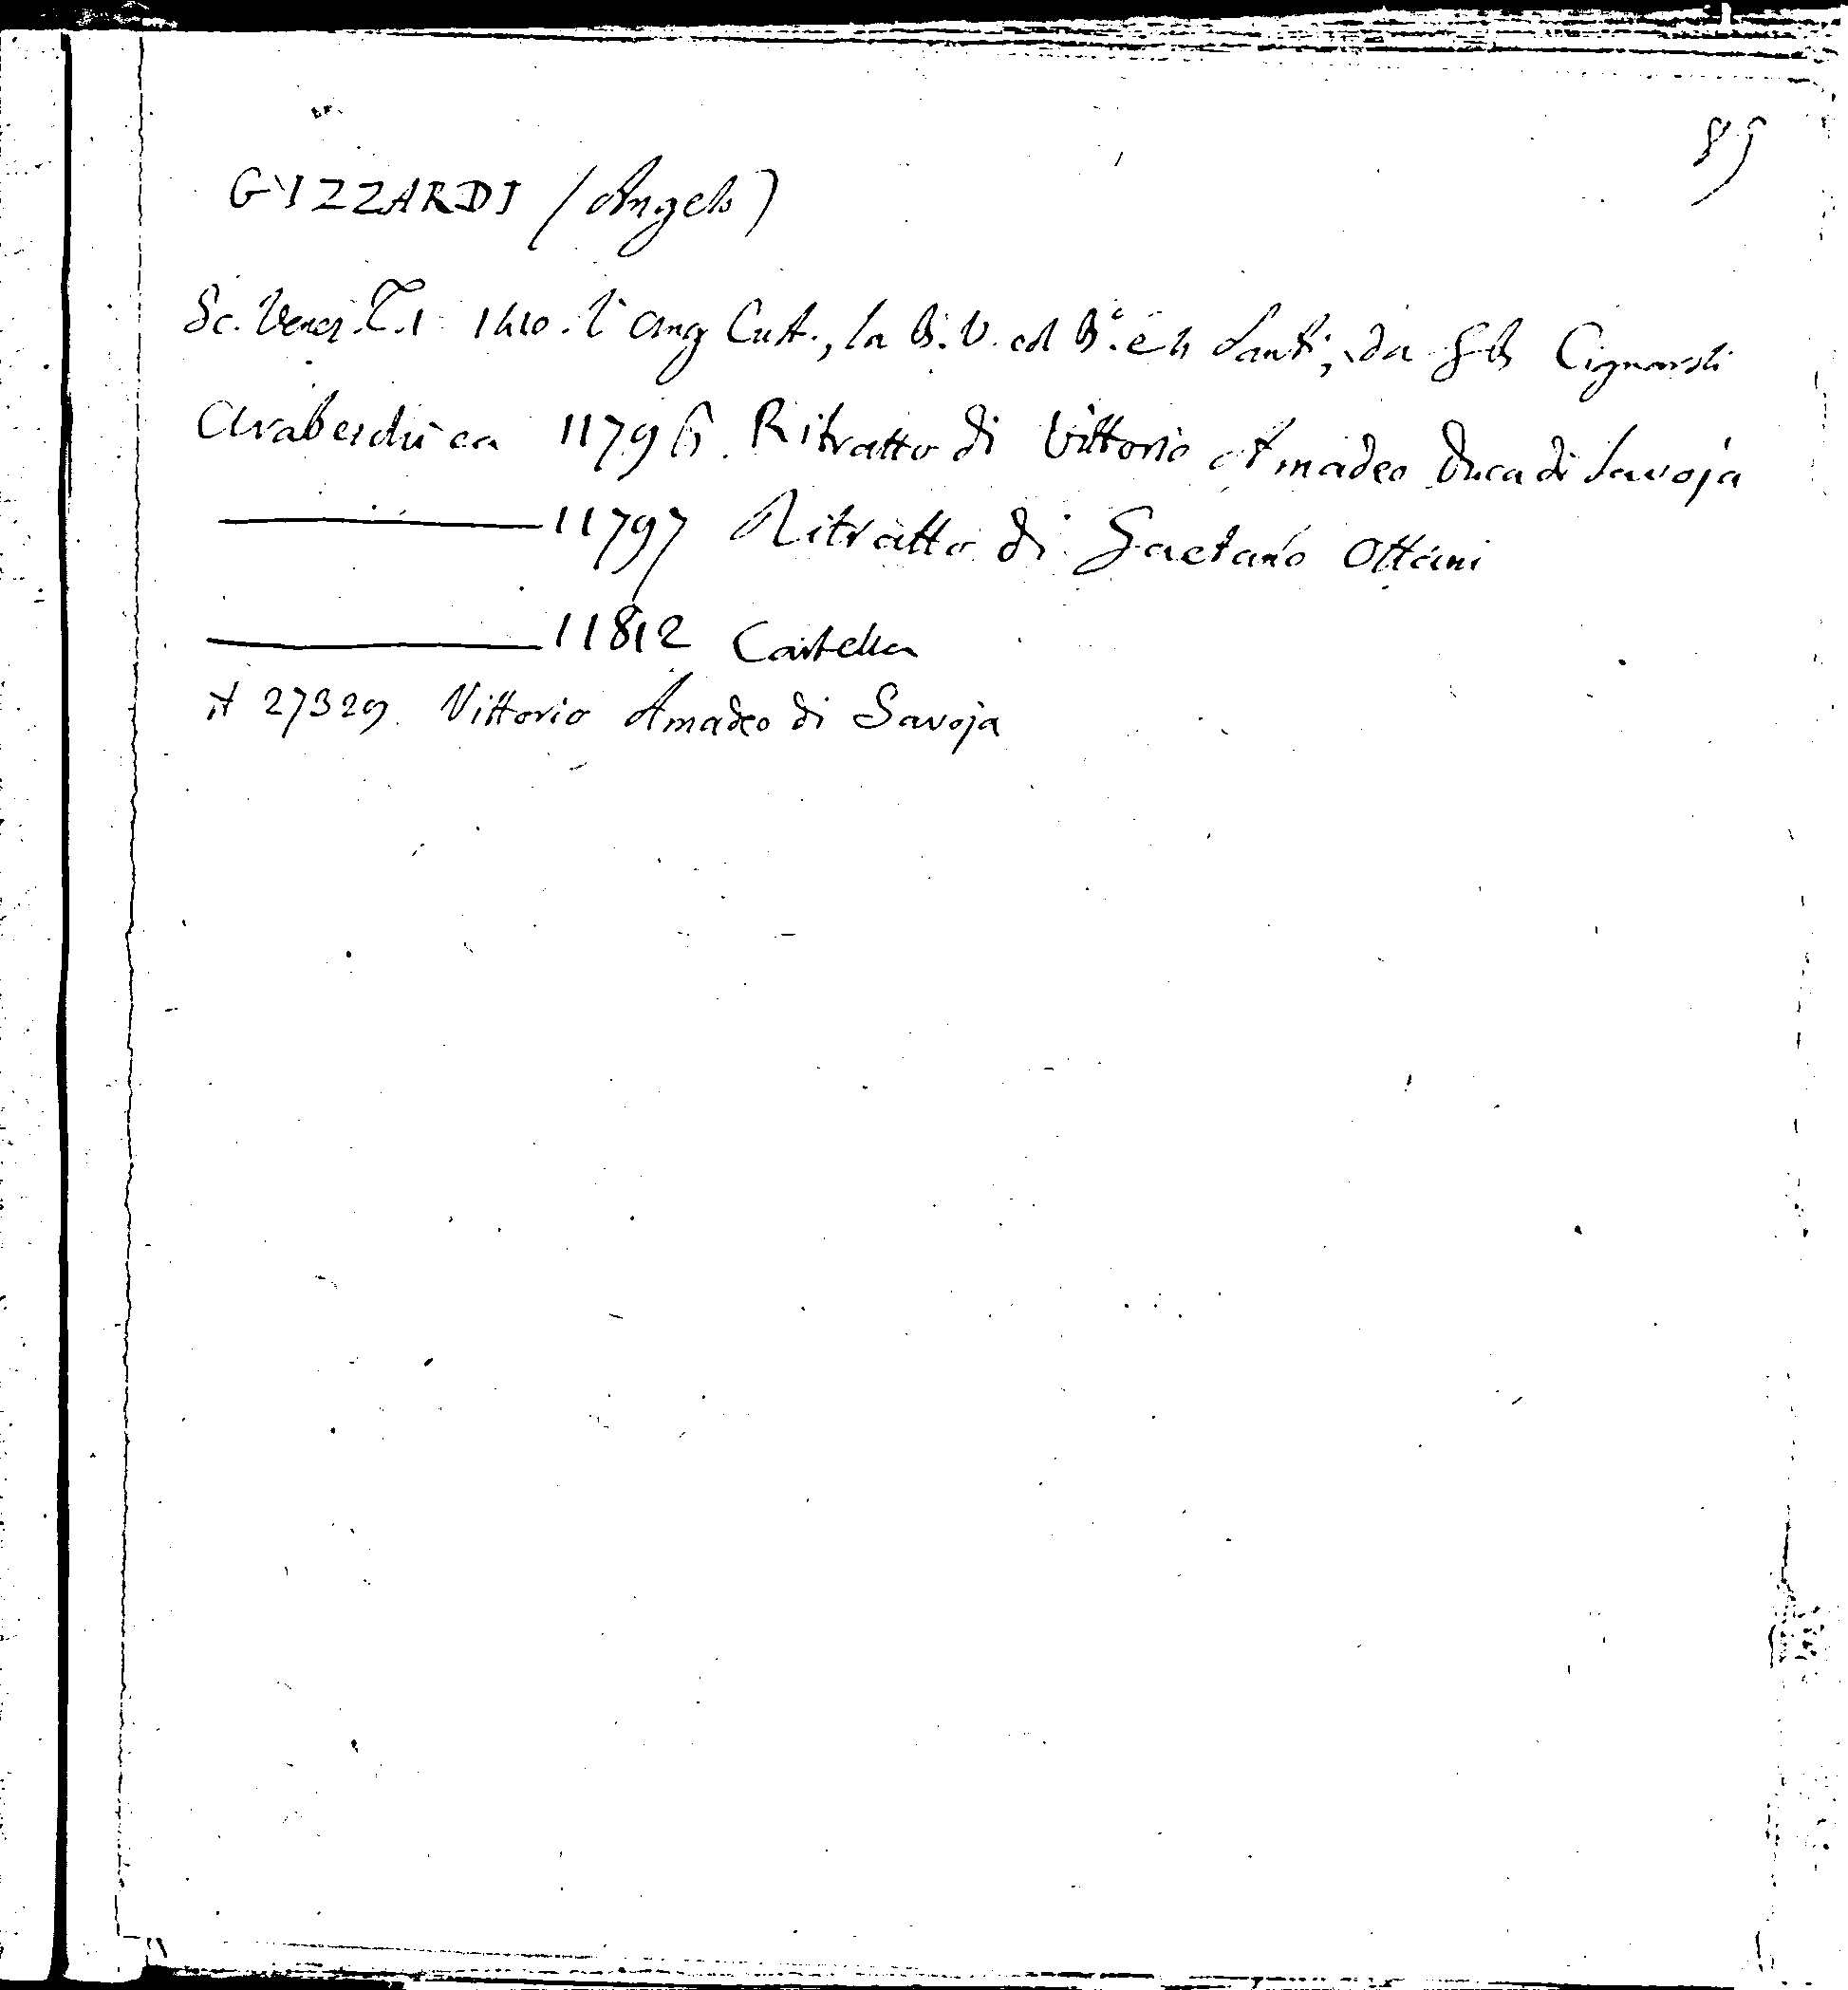 89
GVIZZARDI (Angelo)
Sc. Venez. T. 1 1410. l'Ang Cust., la B. V. col B.º e 4 Santi, da GB Cignaroli
Arabeschi ca 11796. Ritratto di Vittorio Amadeo Duca di Savoja
11797 Ritratto di Gaetano Ottani
11812 Cartella
A 27329. Vittorio Amadeo di Savoja